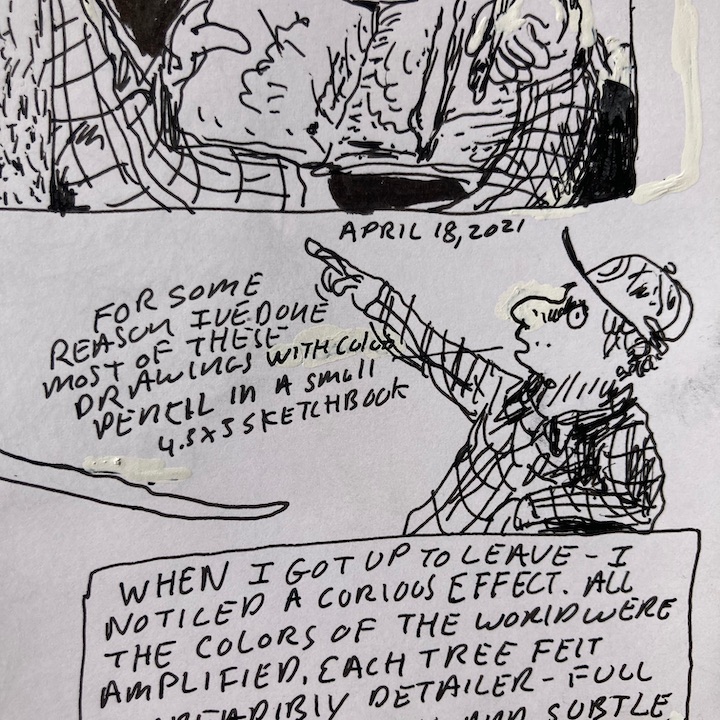 APRIL 18, 2021
FOR SOME
REASON IVE DONE
MOST OF THESE
DRAWINGS WITH COLOR
PENCIL IN A SMALL
4.5X5 SKETCHBOOK
WHEN I GOT UP TO LEAVE - I
NOTICED A CURIOUS EFFECT. ALL
THE COLORS OF THE WORLD WERE
AMPLIFIED. EACH TREE FELT
DETAILER - FULL
AND SUBTLE